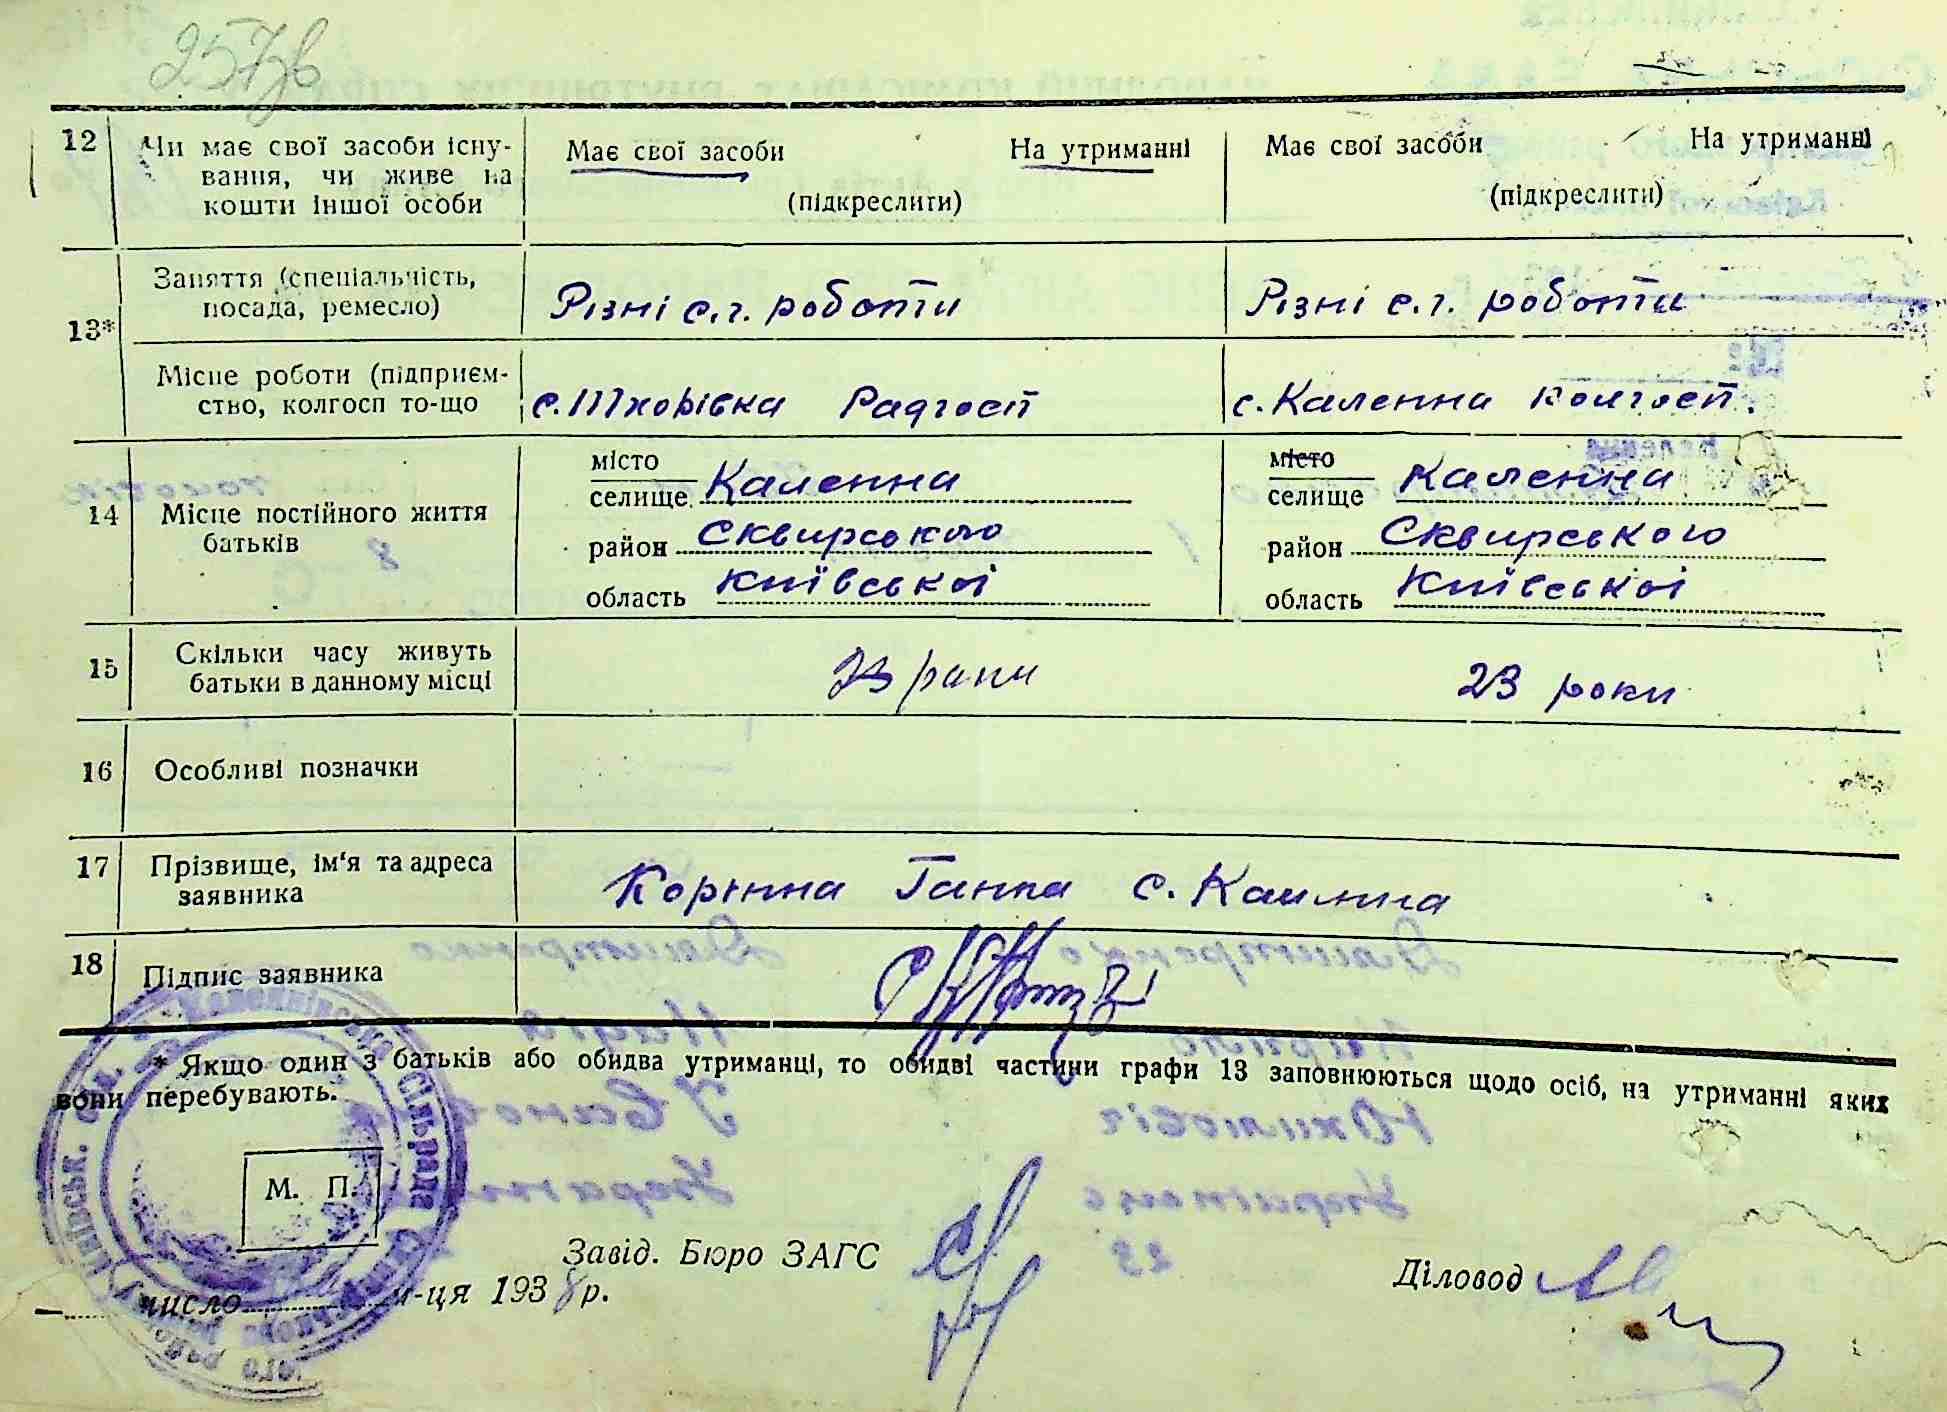 257зв
12 Чи має свої засоби існу- Має свої засоби На утриманні Має свої засоби На утриманні
вання, чи живе на
кошти іншої особи (підкреслити) (підкреслити)
Заняття (спеціальність,
посада, ремесло) Різні с.г. роботи Різні с.г. роботи
13*
Місце роботи (підприєм-
ство, колгосп то-що с. Тхорівка Радгосп с. Каленна колгосп.
місто місто
селище Каленна селище Каленна
14 Місце постійного життя
батьків район Сквирського район Сквирського
область Київської область Київської
15 Скільки часу живуть
батьки в данному місці 23 роки 23 роки
16 Особливі позначки
17 Прізвище, ім'я та адреса
заявника Корінна Ганна с. Каленна
18 Підпис заявника
* Якщо один з батьків або обидва утриманці, то обидві частини графи 13 заповнюються щодо осіб, на утриманні яких
вони перебувають.
М. П.
Завід. Бюро ЗАГС Діловод
число м-ця 1938 р.
Сільрада